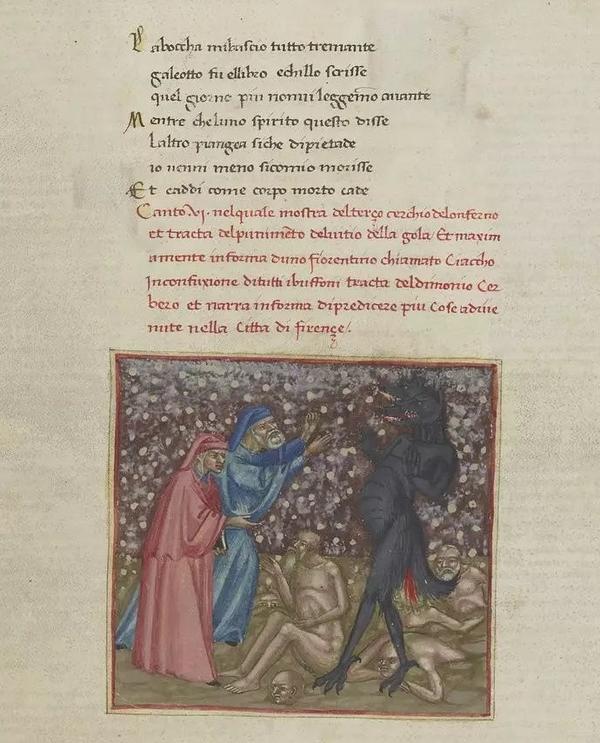 La boccha mi bascio tutto tremante
galeotto fu ellibro echillo scrisse
quel giorno piu nonui leggemo auante
Mentre cheluno spirito questo disse
laltro piangea siche dipietade
io uenni meno sicomio morisse
Et caddi come corpo morto cade
Canto VI. nelquale mostra delterço cerchio delonferno
et tracta delpunimēto deluitio della gola Et maxim
amente informa duno fiorentino chiamato Ciaccho
Inconfuxione ditutti ibuffoni tracta deldimonio Cer
bero et narra informa dipredicere piu Cose adiue
nute nella Citta di firençe.